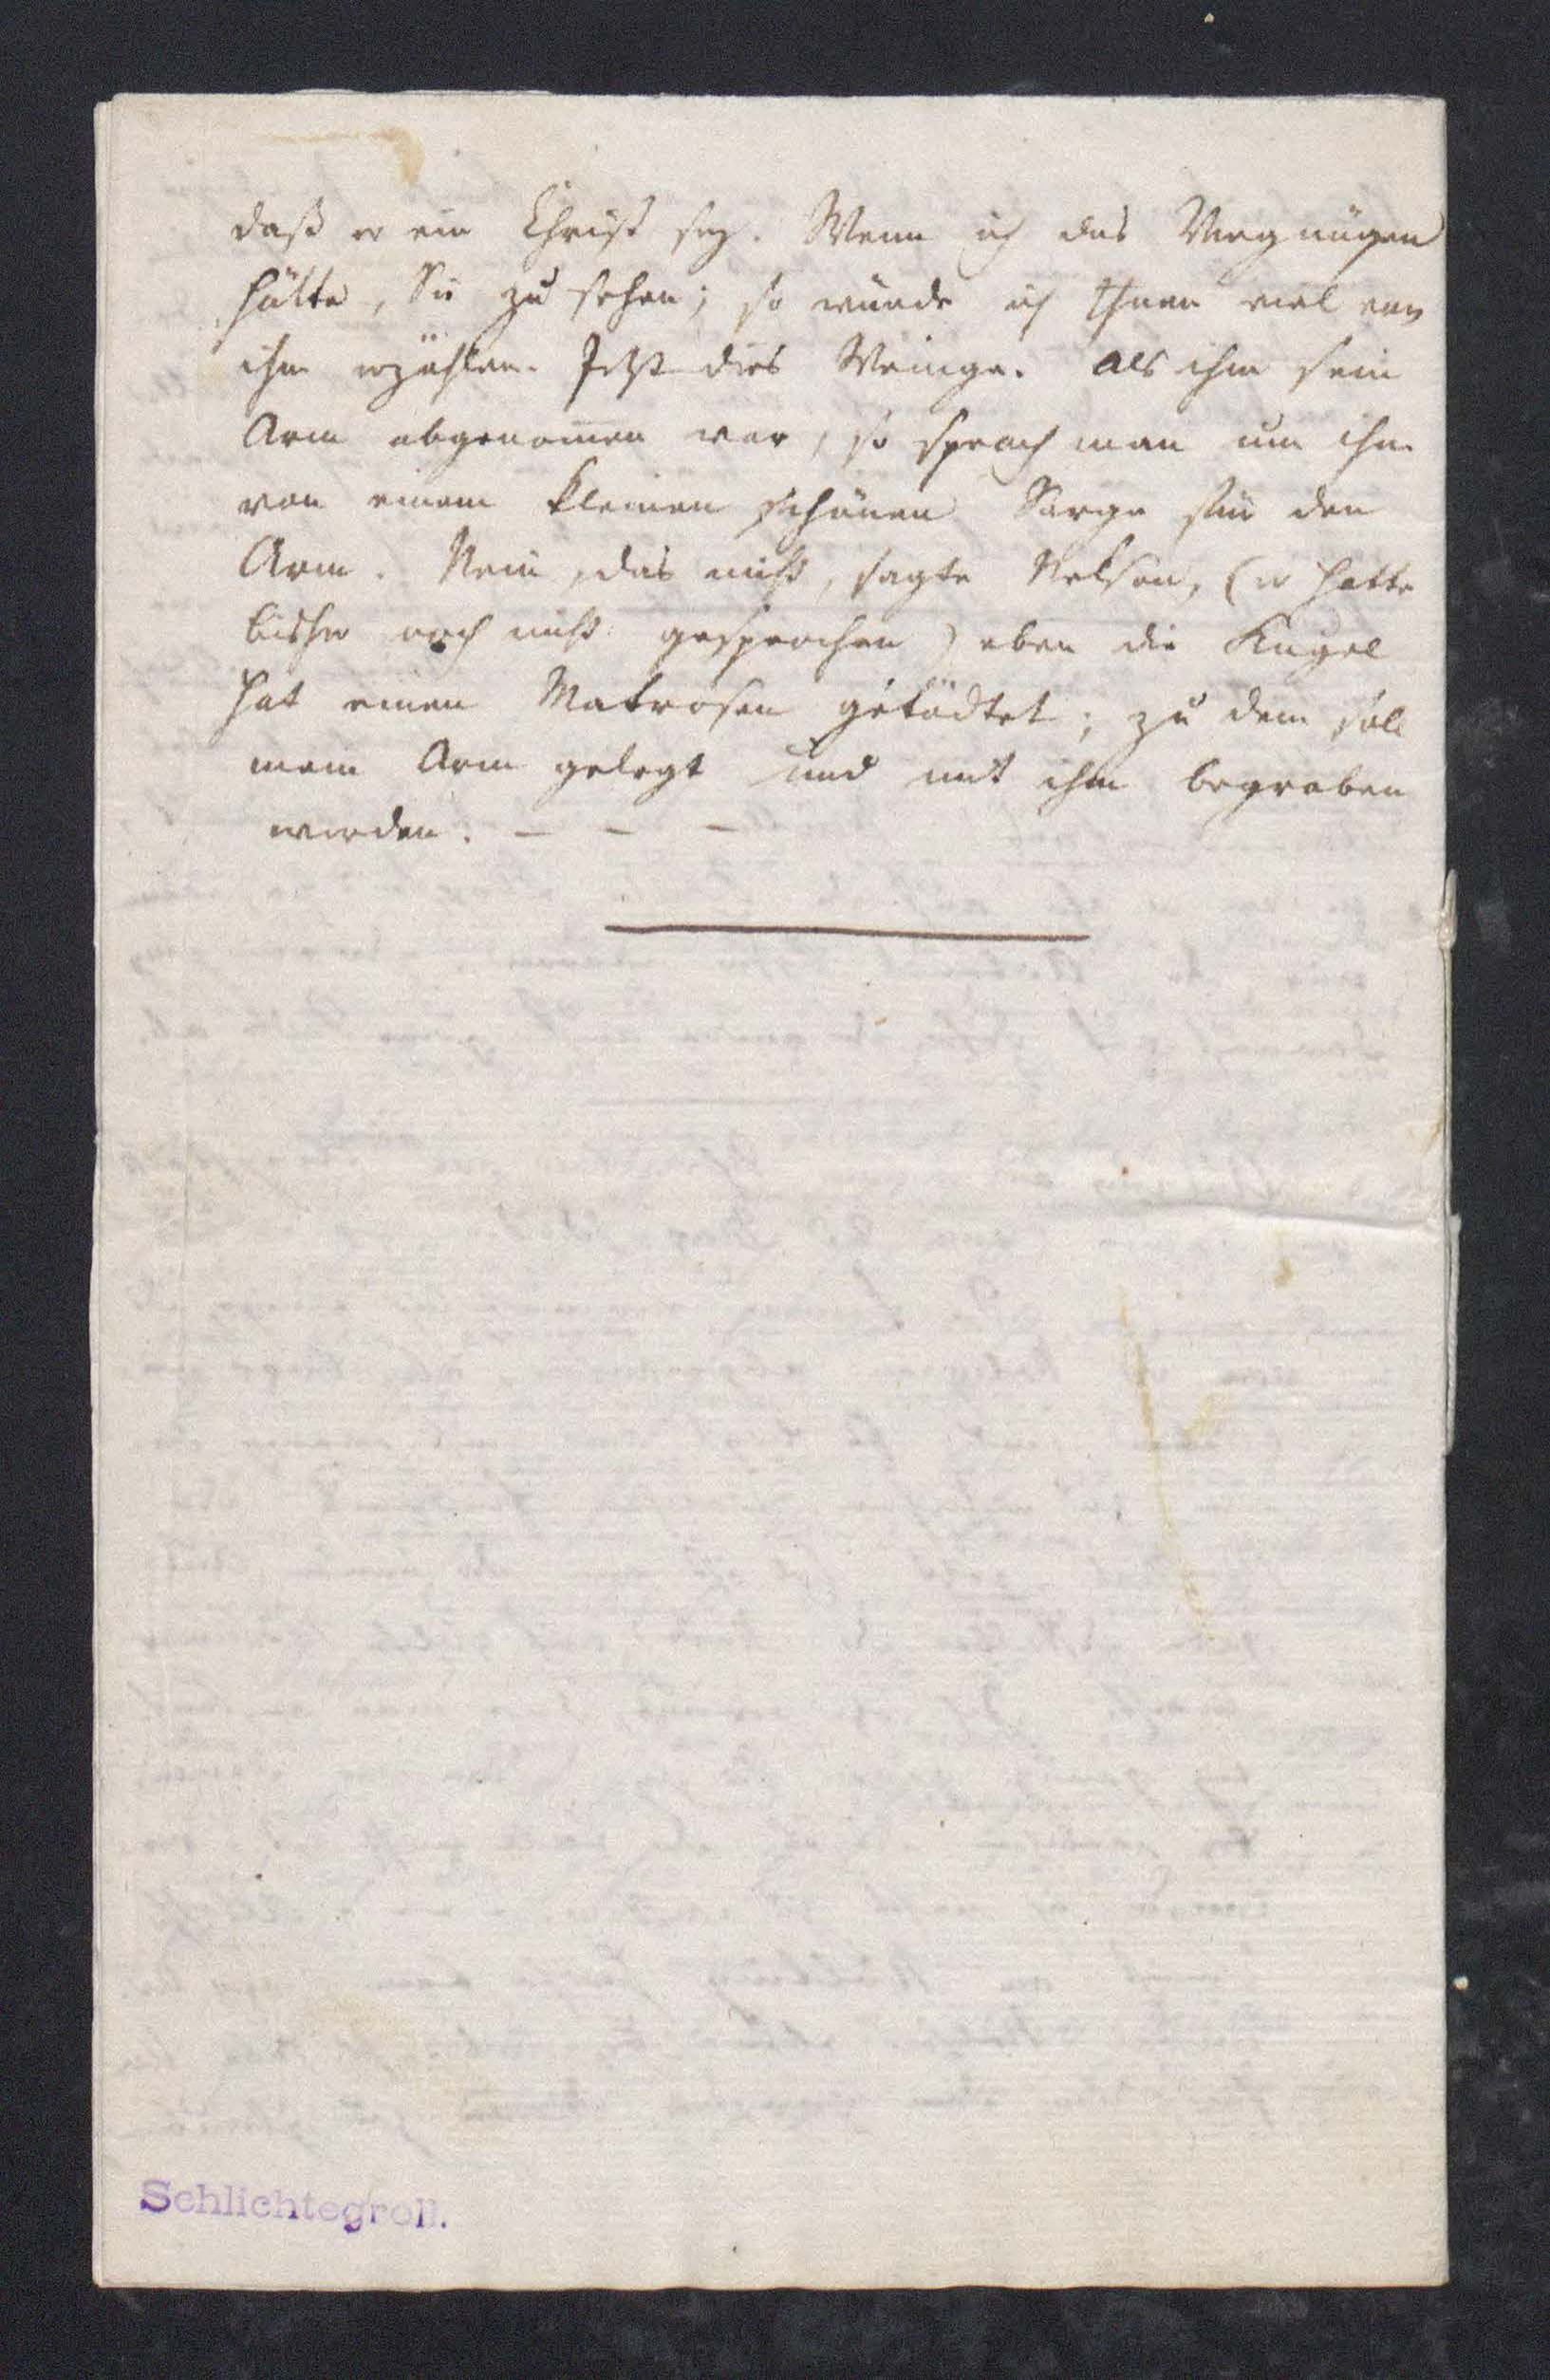 daß er ein Christ sey. Wenn ich das Vergnügen
hätte, Sie zu sehen; so würde ich Ihnen viel von
ihm erzählen. Jetzt dies Wenige. Als ihm sein
Arm abgenommen war, so sprach man um ihn
von einem kleinen schönen Sarge für den
Arm. Nein, das nicht, sagte Nelson, (er hatte
bisher noch nicht gesprochen) eben die Kugel
hat einen Matrosen getödtet; zu dem soll
mein Arm gelegt und mit ihm begraben
werden. – – –
Schlichtegroll.